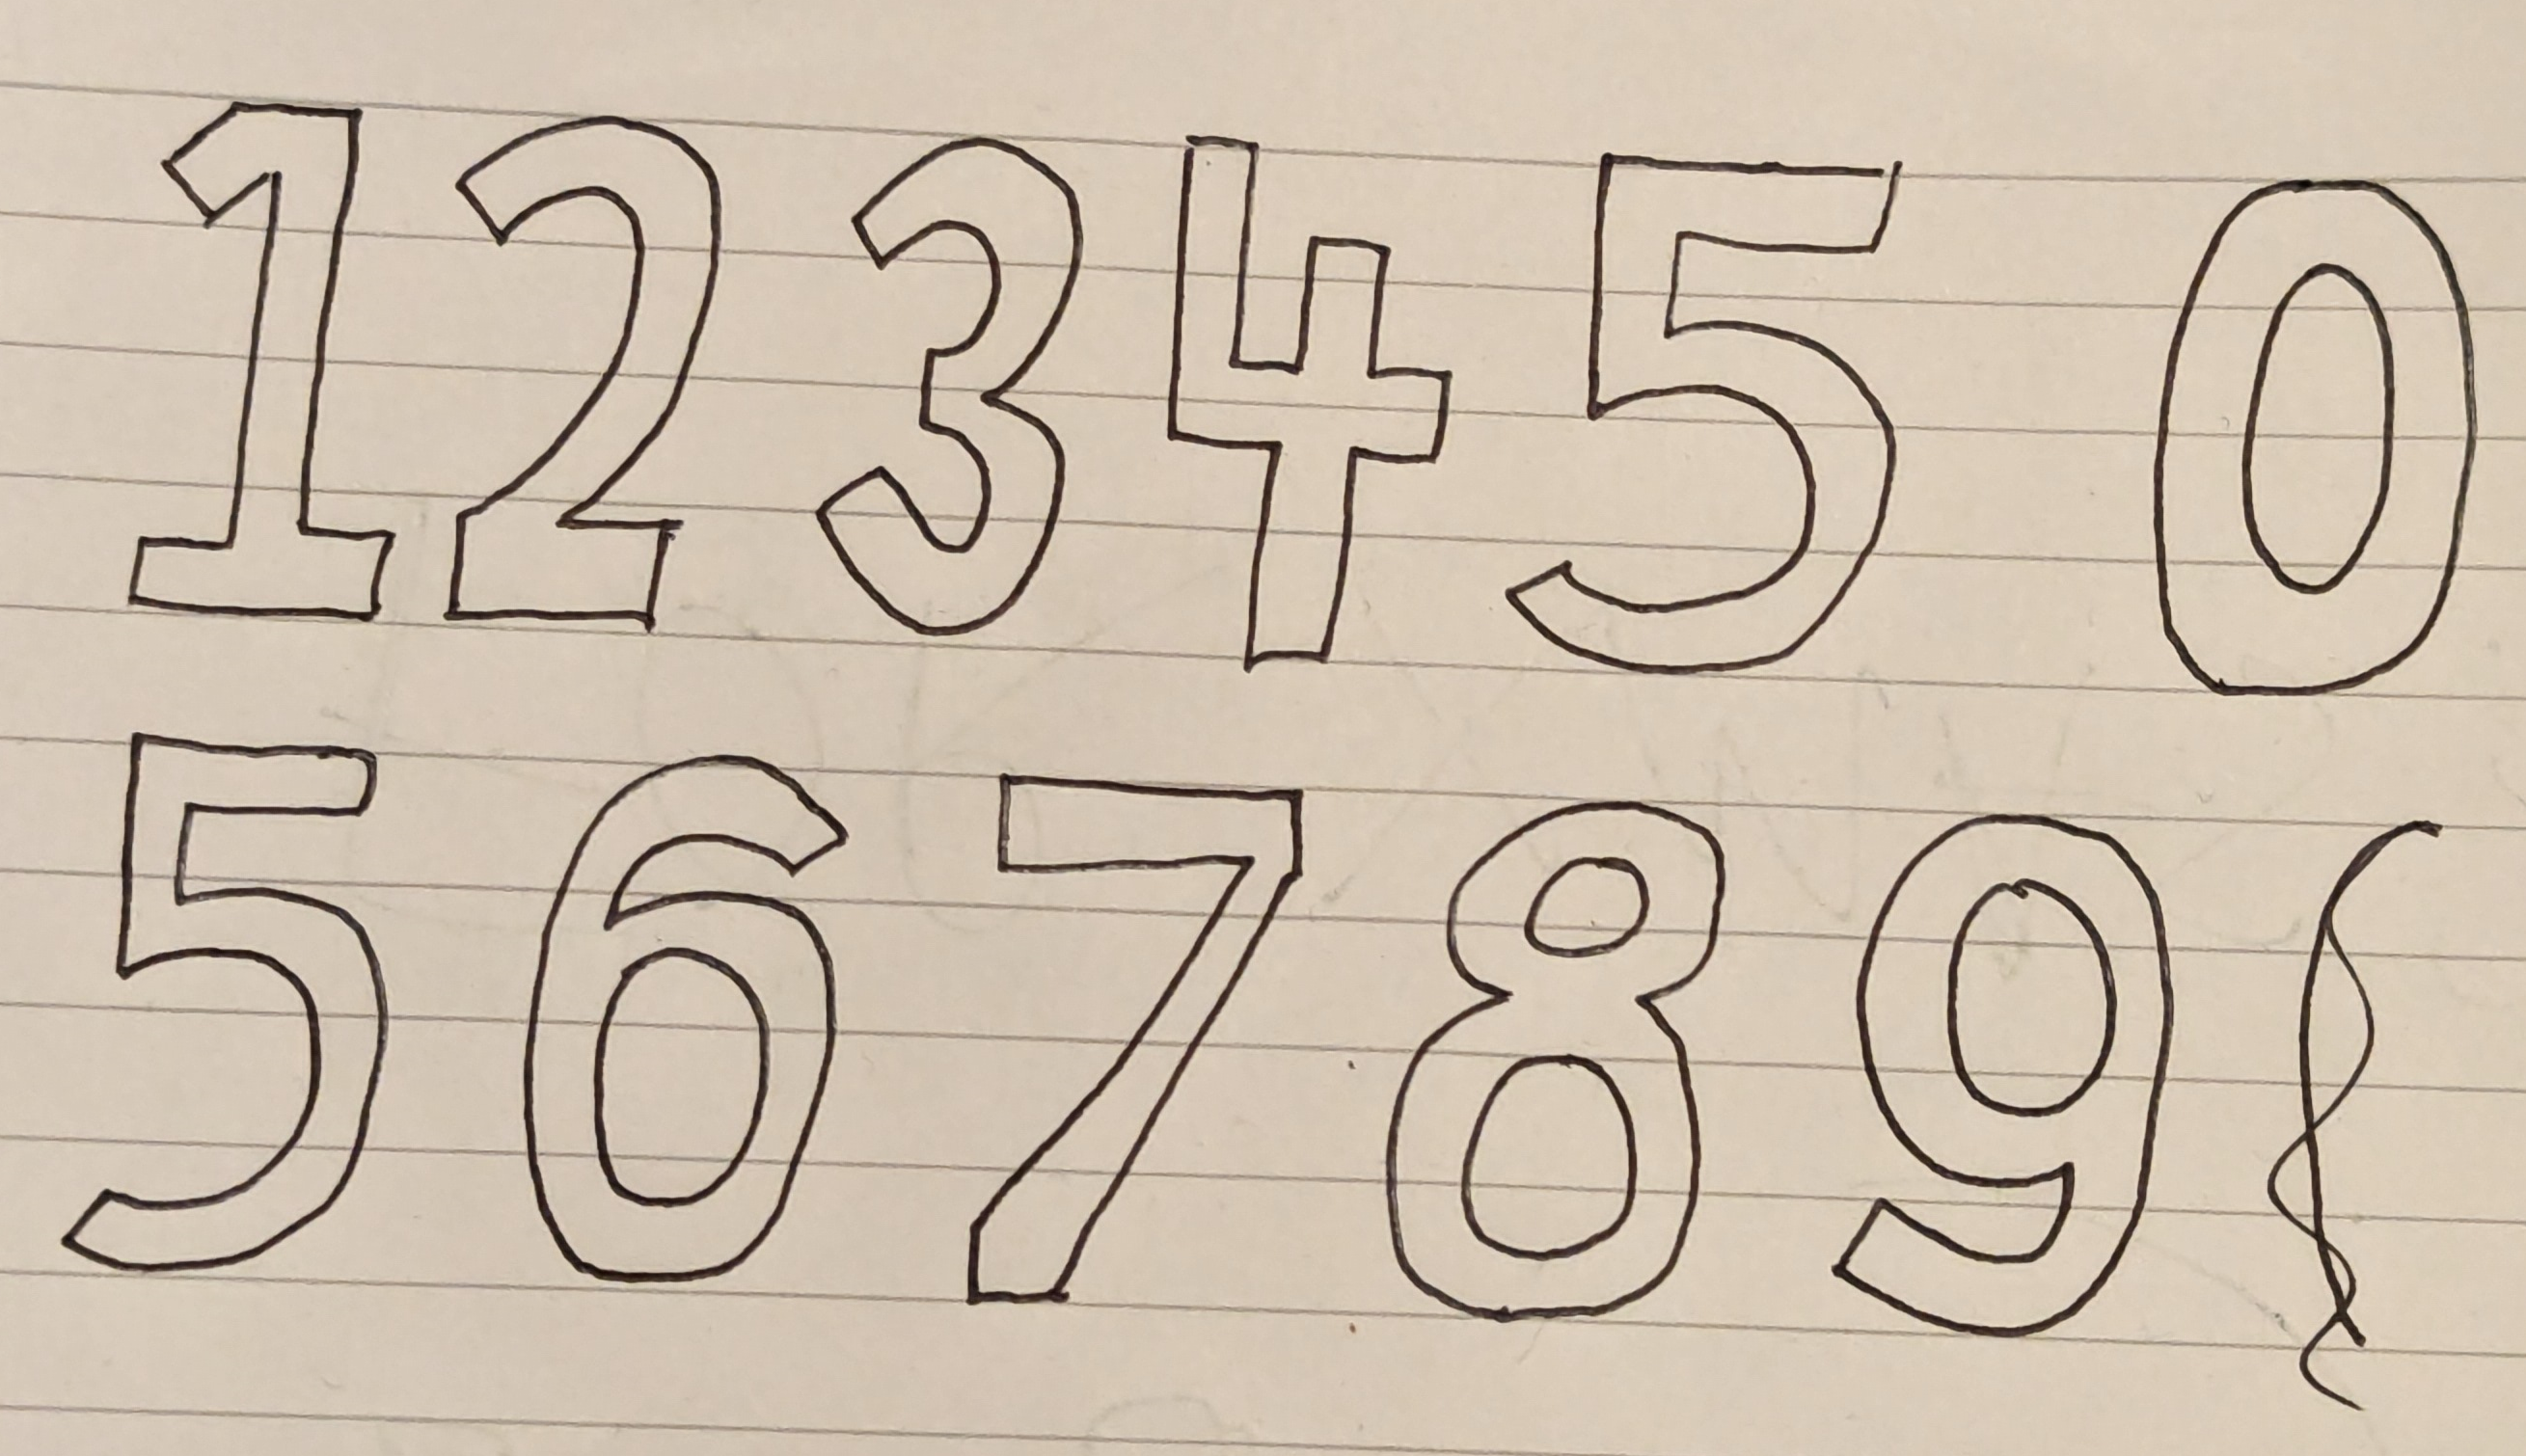 123450
56789